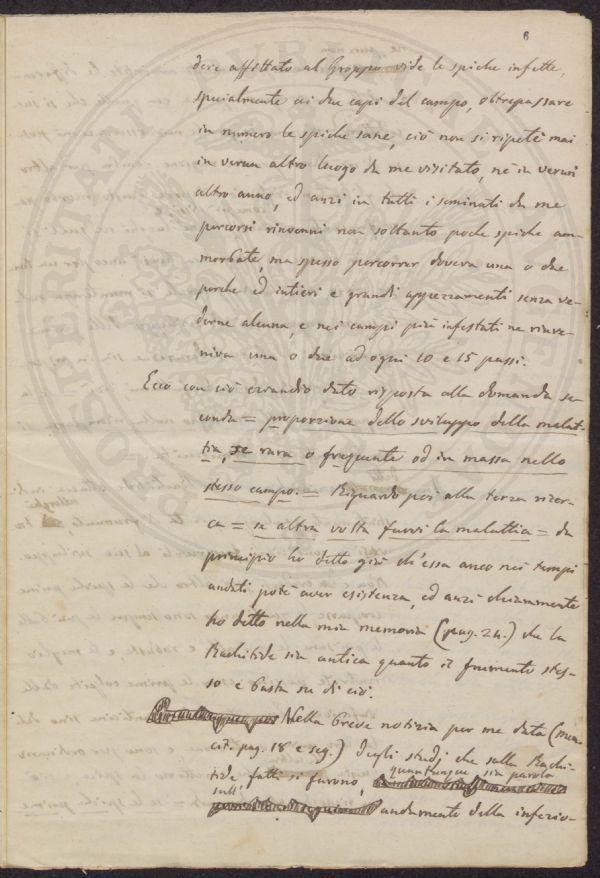 6
dere affittato al Groppo vide le spiche infette,
specialmente ai due capi del campo, oltrepassare
in numero le spiche sane, ciò non si ripetè mai
in verun altro luogo da me visitato, nè in verun
altro anno, ed anzi in tutti i seminati da me
percorsi rinvenni non soltanto poche spiche am-
morbate, ma spesso percorrer doveva una o due
porche ed intieri e grandi appezzamenti senza ve-
derne alcuna, e nei campi più infestati ne rinve-
niva una o due ad ogni 10 e 15 passi.
Ecco con ciò eziandio dato risposta alla domanda se-
conda = proporzione dello sviluppo della malat-
tia, se rara o frequente od in massa nello
stesso campo. = Riguardo poi alla terza ricer-
ca = se altra volta fuvvi la malattia = da
principio ho detto già ch'essa anco nei tempi
andati potè aver esistenza, ed anzi chiaramente
ho detto nella mia memoria (pag. 24.) che la
Rachitide sia antica quanto il frumento stes-
so e basta su di ciò.
Nella breve notizia per me data (mem.
cit. pag. 18 e seg.) degli studj che sulla Rachi-
tide fatti si furono, quantunque sia parola
sull' andamento della inferio-